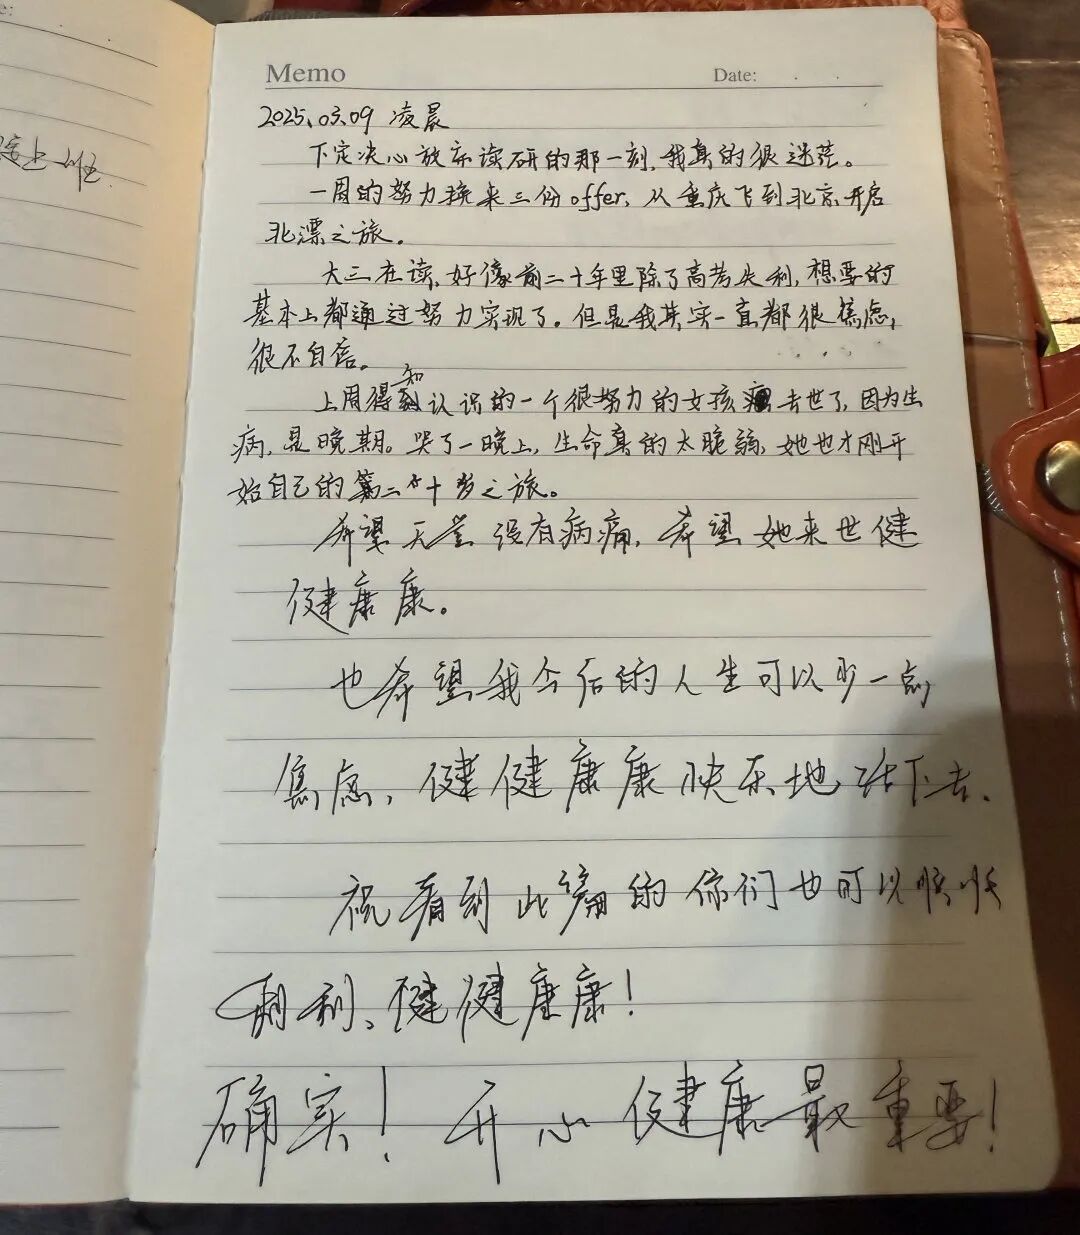 Memo Date:
2025.03.09 凌晨
下定决心放弃读研的那一刻，我真的很迷茫。
一周的努力换来三份offer，从重庆飞到北京开启
北漂之旅。
大三在读，好像前二十年里除了高考失利，想要的
基本上都通过努力实现了。但是我其实一直都很焦虑，
很不自信。
上周得知认识的一个很努力的女孩去世了，因为生
病，是晚期。哭了一晚上，生命真的太脆弱，她也才刚开
始自己的第二个十岁之旅。
希望天堂没有病痛，希望她来世健
健康康。
也希望我今后的人生可以少一点
焦虑，健健康康快乐地活下去、
祝看到此篇的你们也可以顺顺
利利、健健康康！
确实！开心健康最重要！
上班